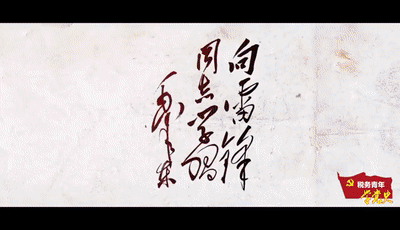 向雷锋
同志学习
毛泽东
税务青年
学党史